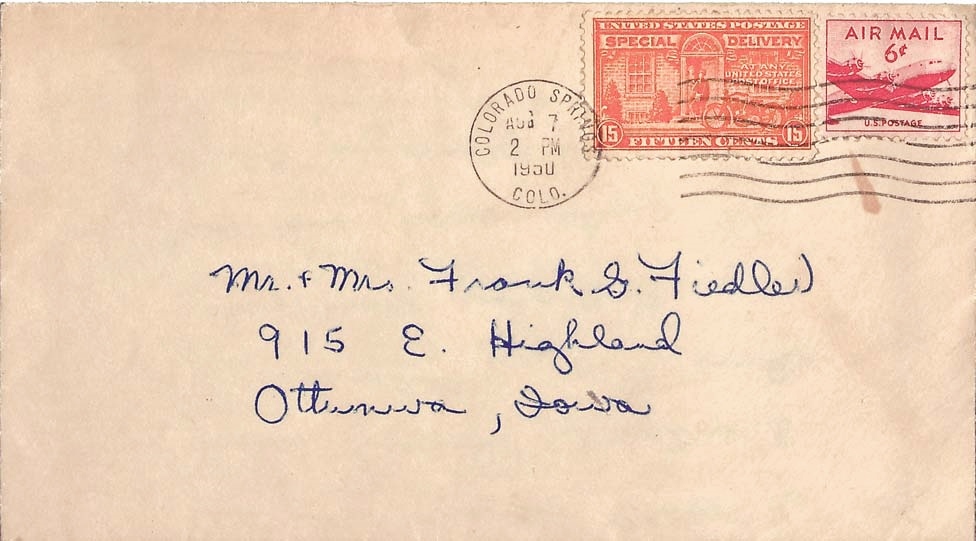 UNITED STATES POSTAGE
SPECIAL DELIVERY
AT ANY
UNITED STATES
POST OFFICE
15 15
FIFTEEN CENTS
AIR MAIL
6¢
U.S. POSTAGE
COLORADO SPRINGS
AUG 7
2 PM
1950
COLO.
Mr. & Mrs. Frank G. Fiedler
915 E. Highland
Ottumwa, Iowa